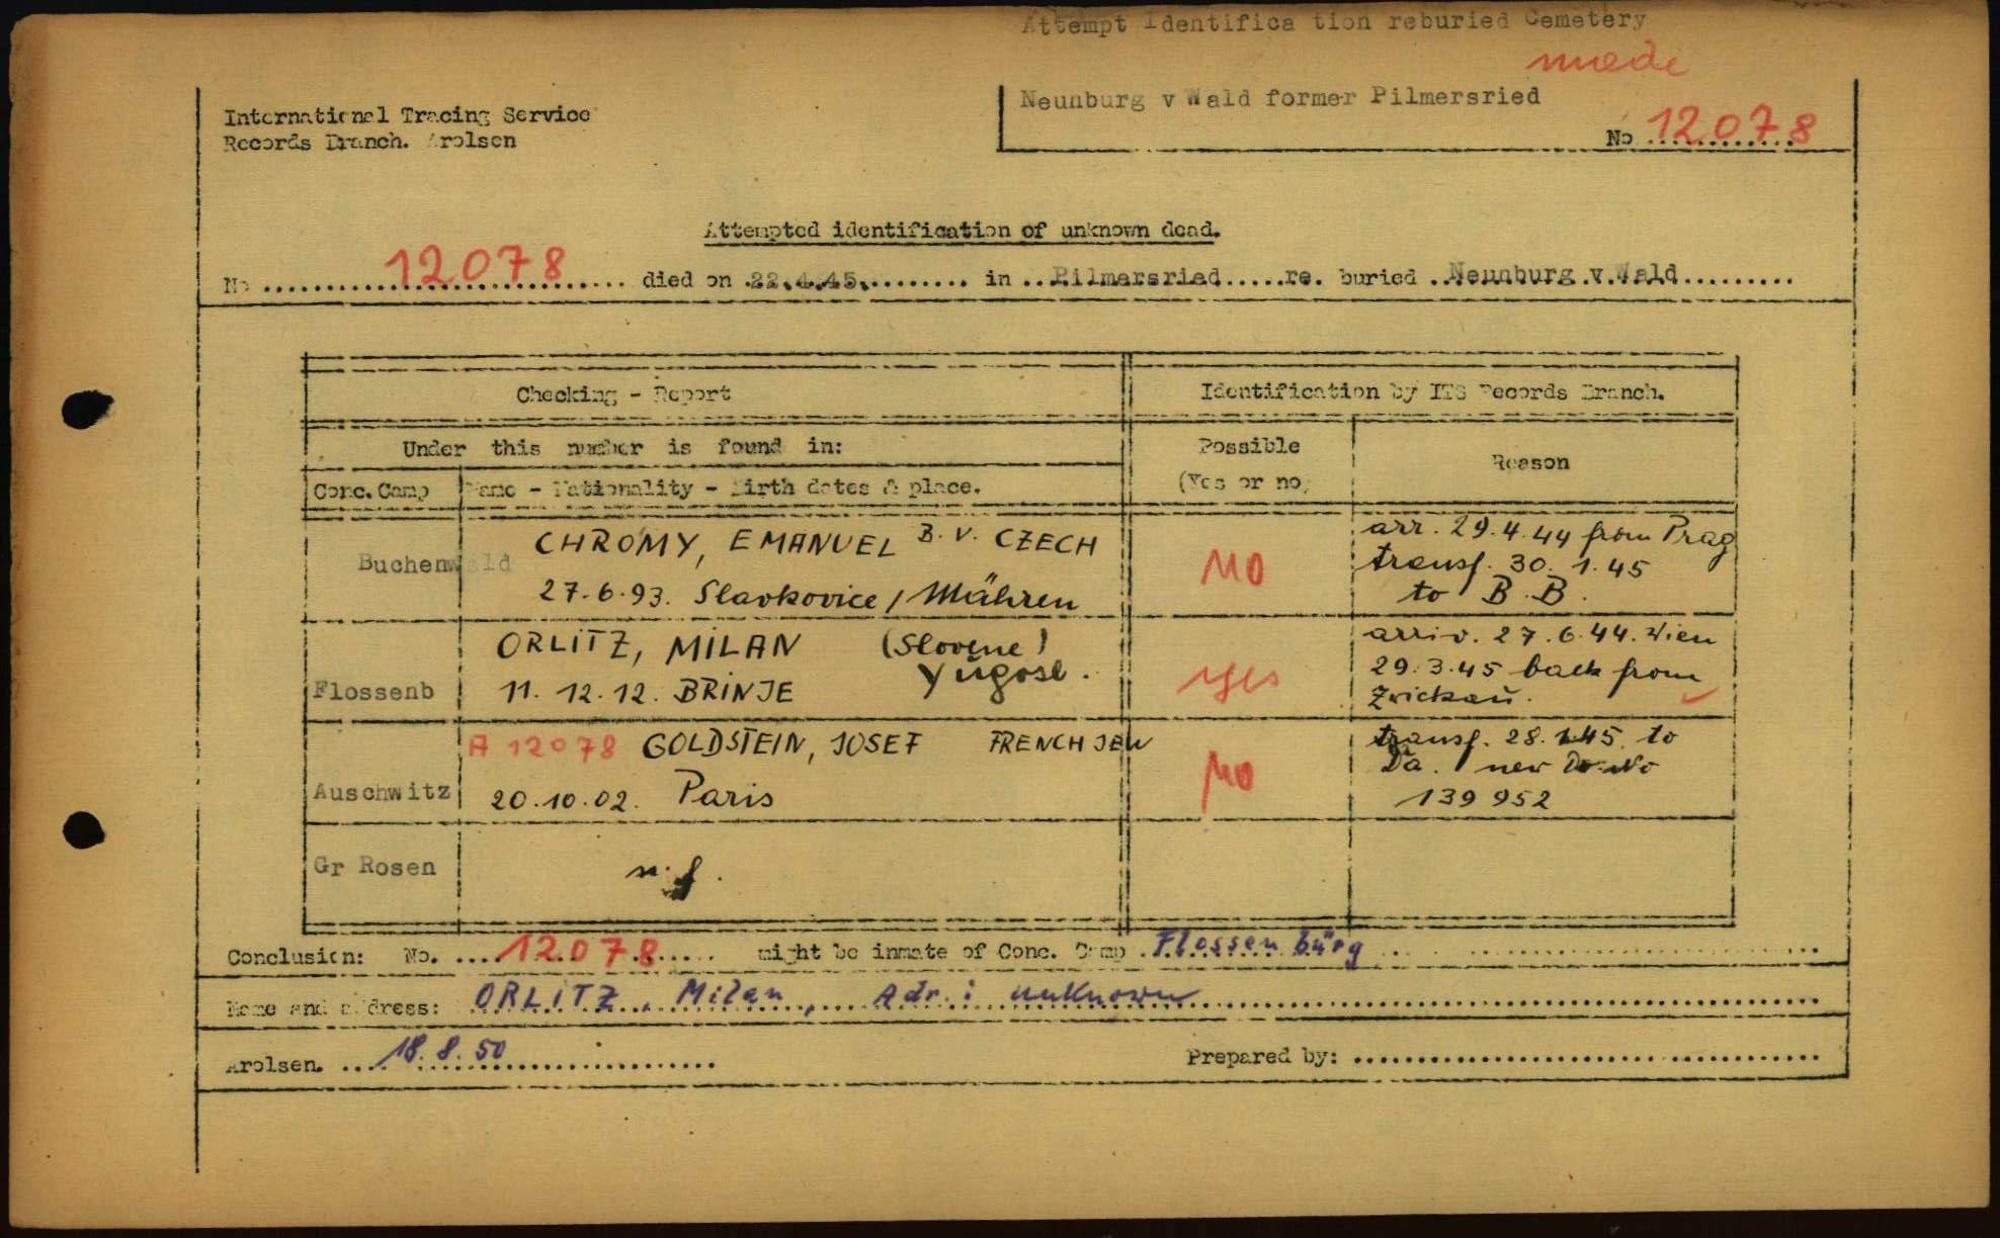 Attempt Identifica tion reburied Cemetery
made
Neunburg v Wald former Pilmersried
No 12078
International Tracing Service
Records Branch. Arolsen
Attempted identification of unknown dead.
No 12078 died on 22.4.45. in Pilmersried re. buried Neunburg v. Wald
Checking - Report
Identification by ITS Records Branch.
Under this number is found in:
Possible
(Yes or no)
Reason
Conc. Camp
Name - Nationality - Birth dates & place.
Buchenwald
CHROMY, EMANUEL B.V. CZECH
27.6.93. Slavkovice / Mähren
NO
arr. 29.4.44 from Prag
transf. 30.1.45
to B.B.
Flossenb
ORLITZ, MILAN (Slovene)
11.12.12. BRINJE Yugosl.
yes
arriv. 27.6.44. Wien
29.3.45 back from
Zwickau.
Auschwitz
A 12078 GOLDSTEIN, JOSEF FRENCH JEW
20.10.02. Paris
NO
transf. 28.1.45. to
Da. new Da. No
139952
Gr Rosen
n.f.
Conclusion: No. 12078 might be inmate of Conc. Camp Flossenbürg
Name and address: ORLITZ, Milan, Adr.: unknown
Arolsen. 18.8.50
Prepared by: